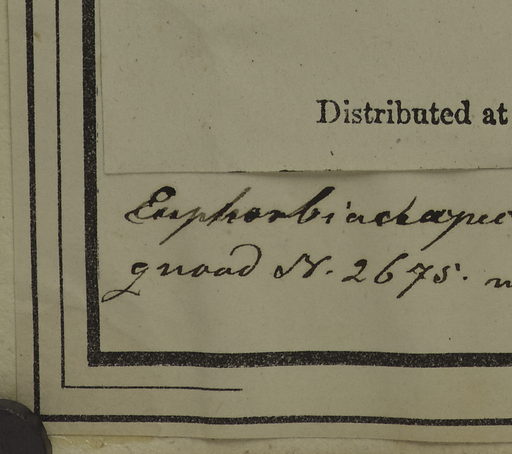 Distributed at
Euphorbiachapec
gnoad N. 2675.